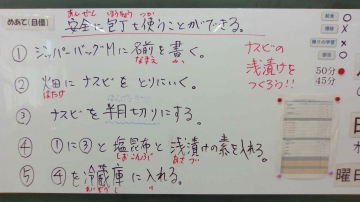 めあて(目標) 安全に包丁を使うことができる。
あんぜん ほうちょう つか
① ジッパーバッグMに名前を書く。
なまえ か
② 畑にナスビをとりにいく。
はたけ
③ ナスビを半月切りにする。
④ ①に③と塩昆布と浅漬けの素を入れる。
しおこんぶ あさづ
⑤ ④を冷蔵庫に入れる。
ナスビの
浅漬けを
つくろう!!
50分
45分
曜
曜日